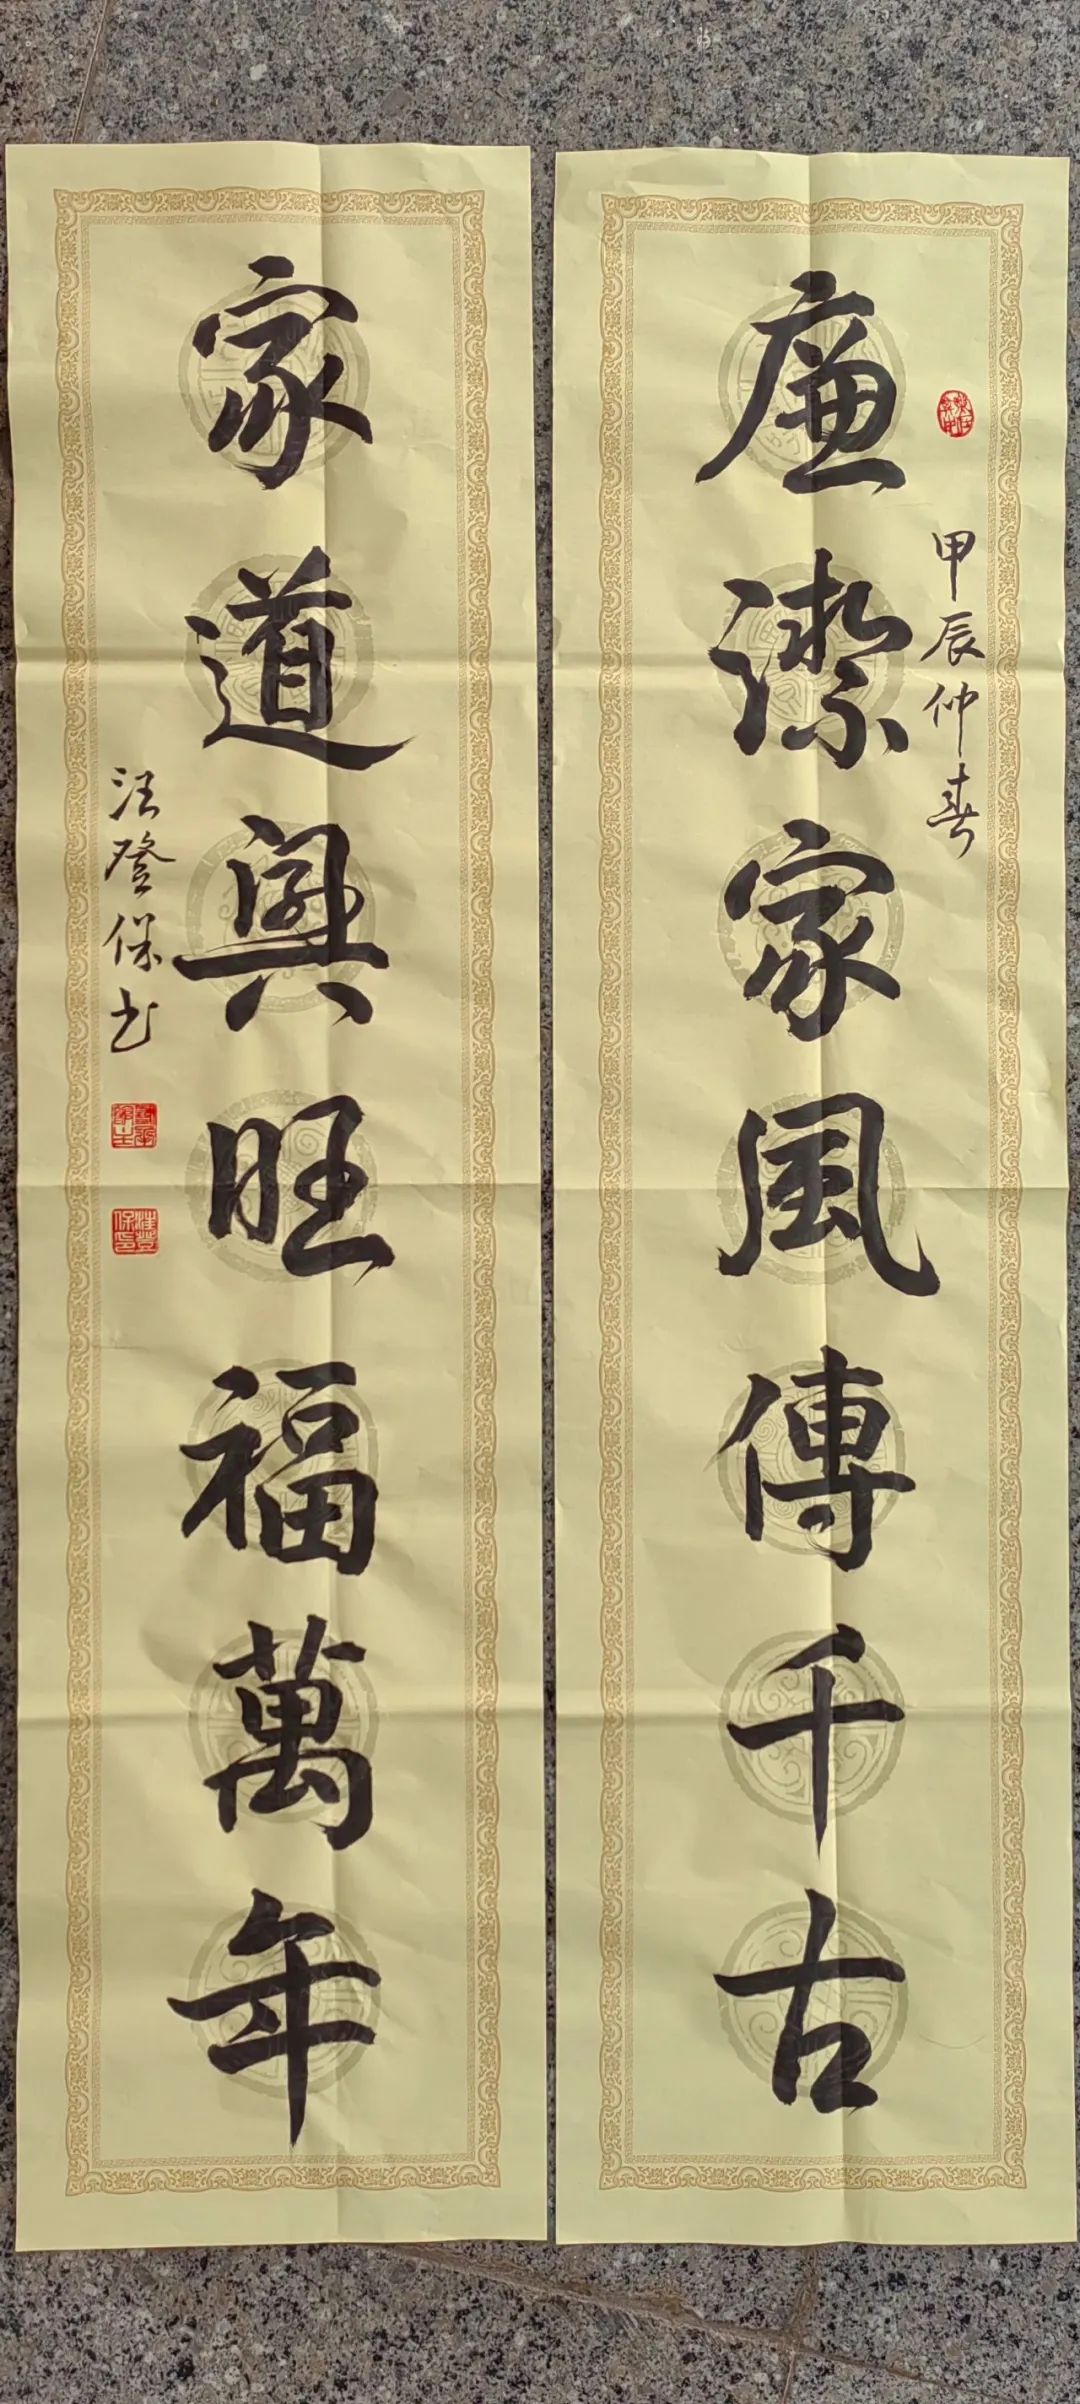 廉潔家風傳千古
甲辰仲春
家道興旺福萬年
汪登保书
汪登保印